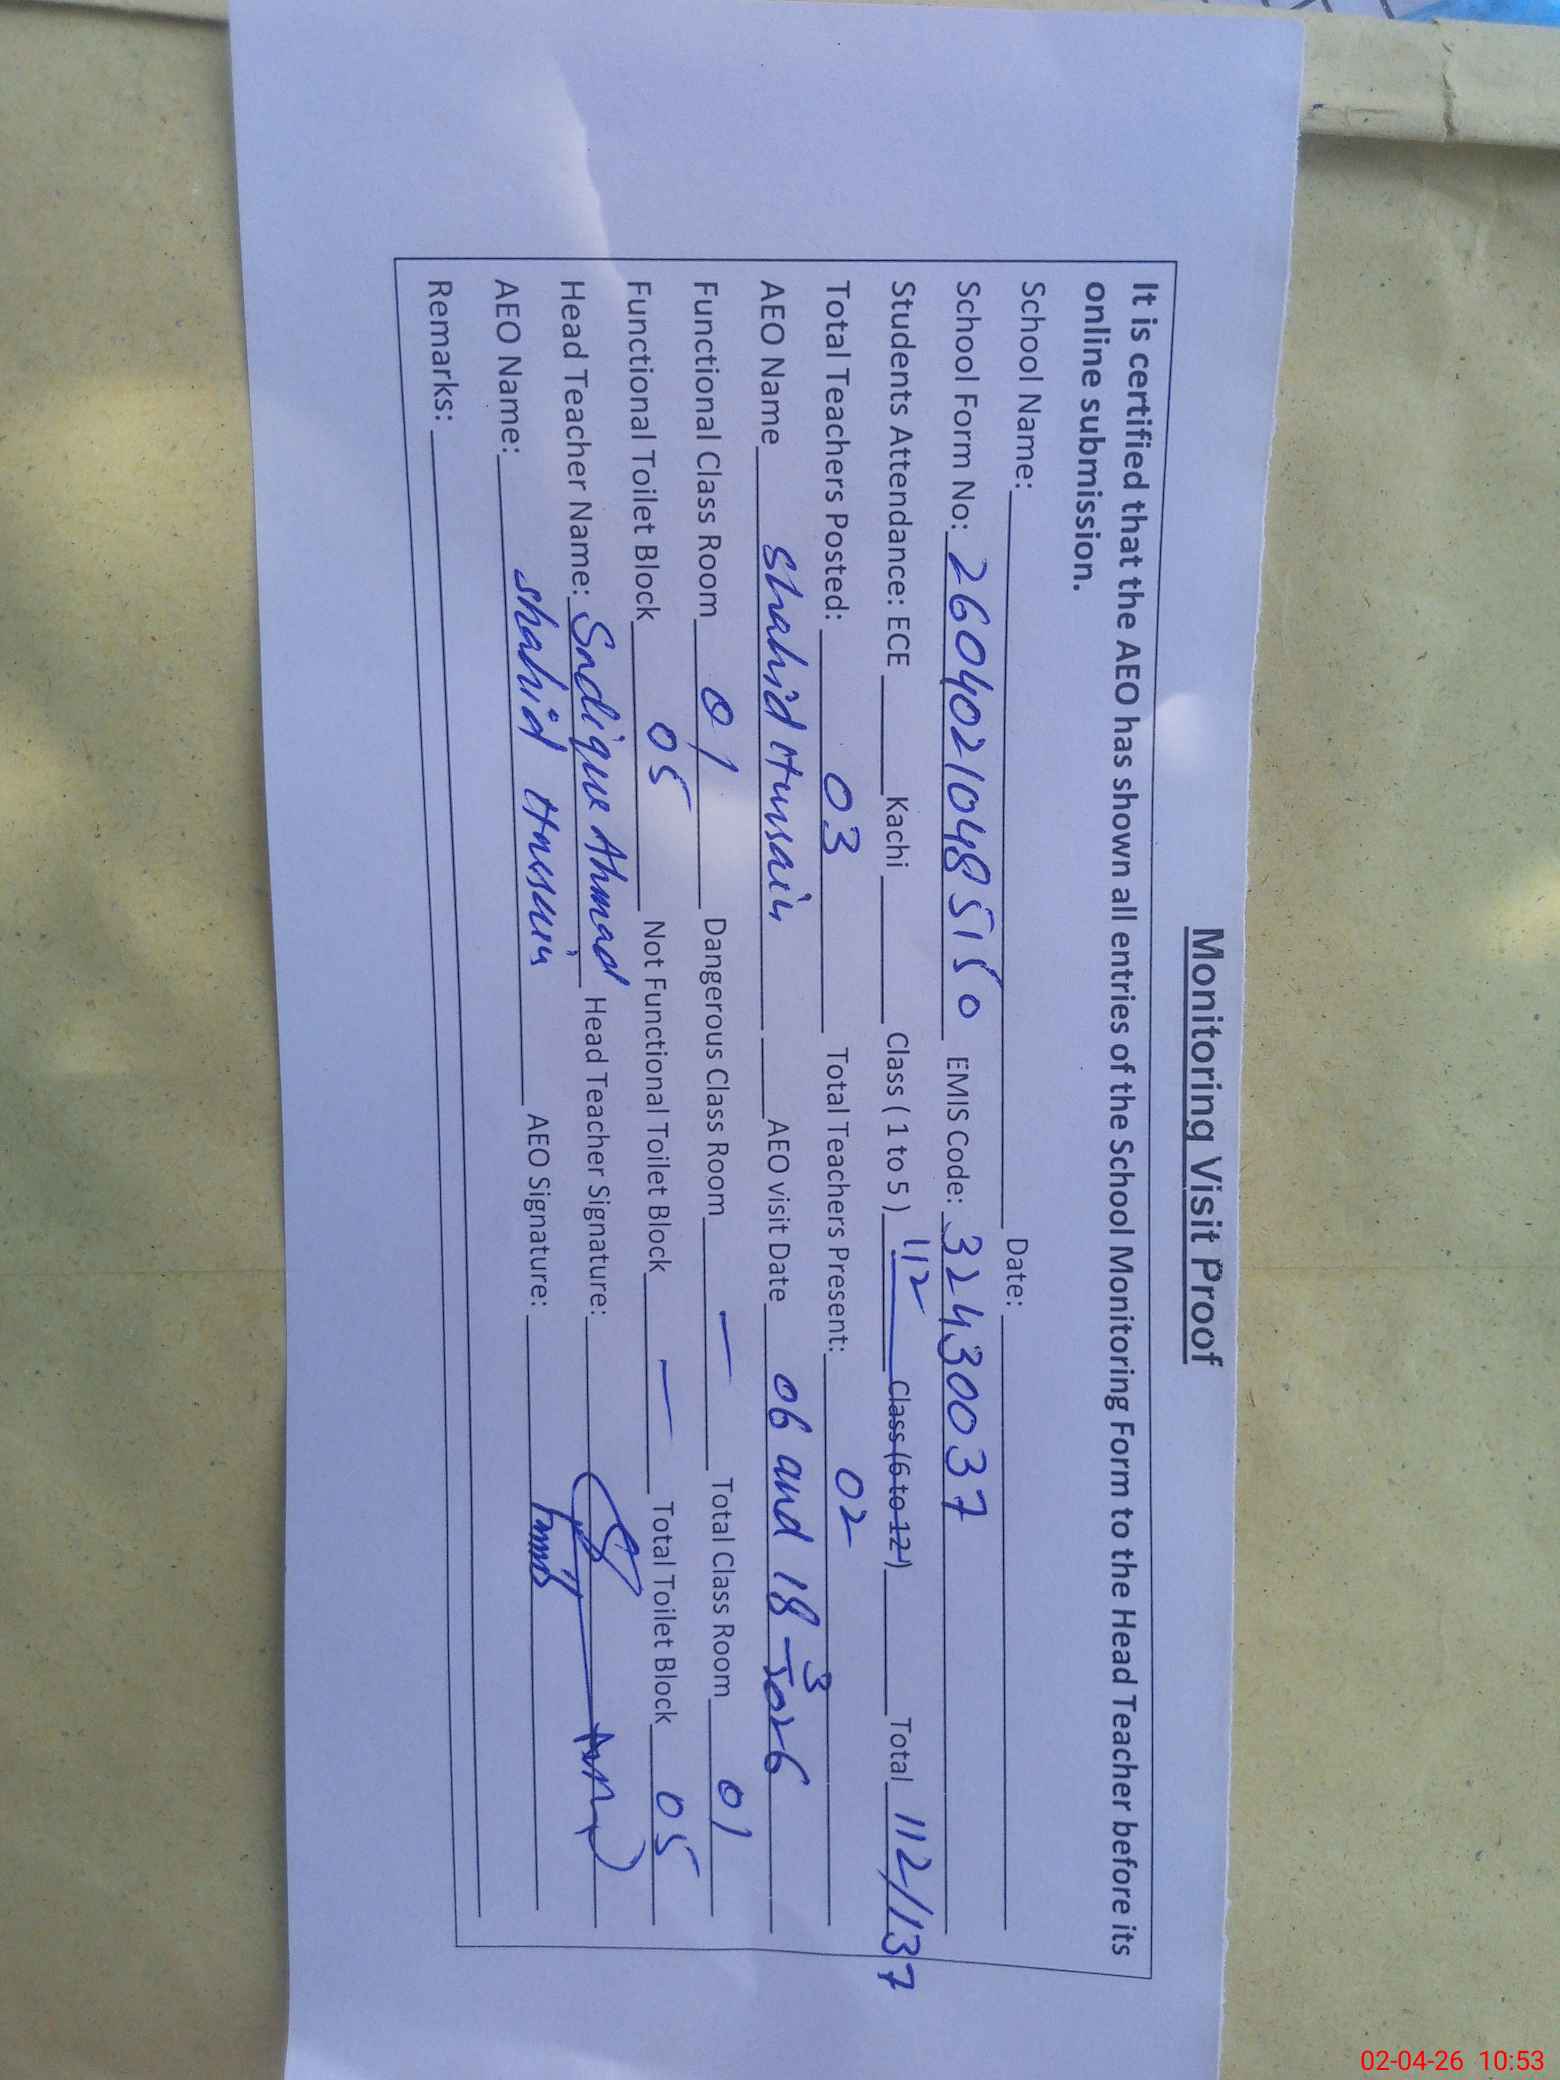 Monitoring Visit Proof
It is certified that the AEO has shown all entries of the School Monitoring Form to the Head Teacher before its
online submission.
School Name: Date:
School Form No: 26040210485150 EMIS Code: 32430037
Students Attendance: ECE Kachi Class ( 1 to 5 ) 112 Class (6 to 12) Total 112/137
Total Teachers Posted: 03 Total Teachers Present: 02
AEO Name Shahid Hussain AEO visit Date 06 and 18-3
Functional Class Room 01 Dangerous Class Room — Total Class Room 01
Functional Toilet Block 05 Not Functional Toilet Block — Total Toilet Block 05
Head Teacher Name: Sadique Ahmad Head Teacher Signature:
AEO Name: Shahid Hussain AEO Signature:
Remarks:
02-04-26 10:53